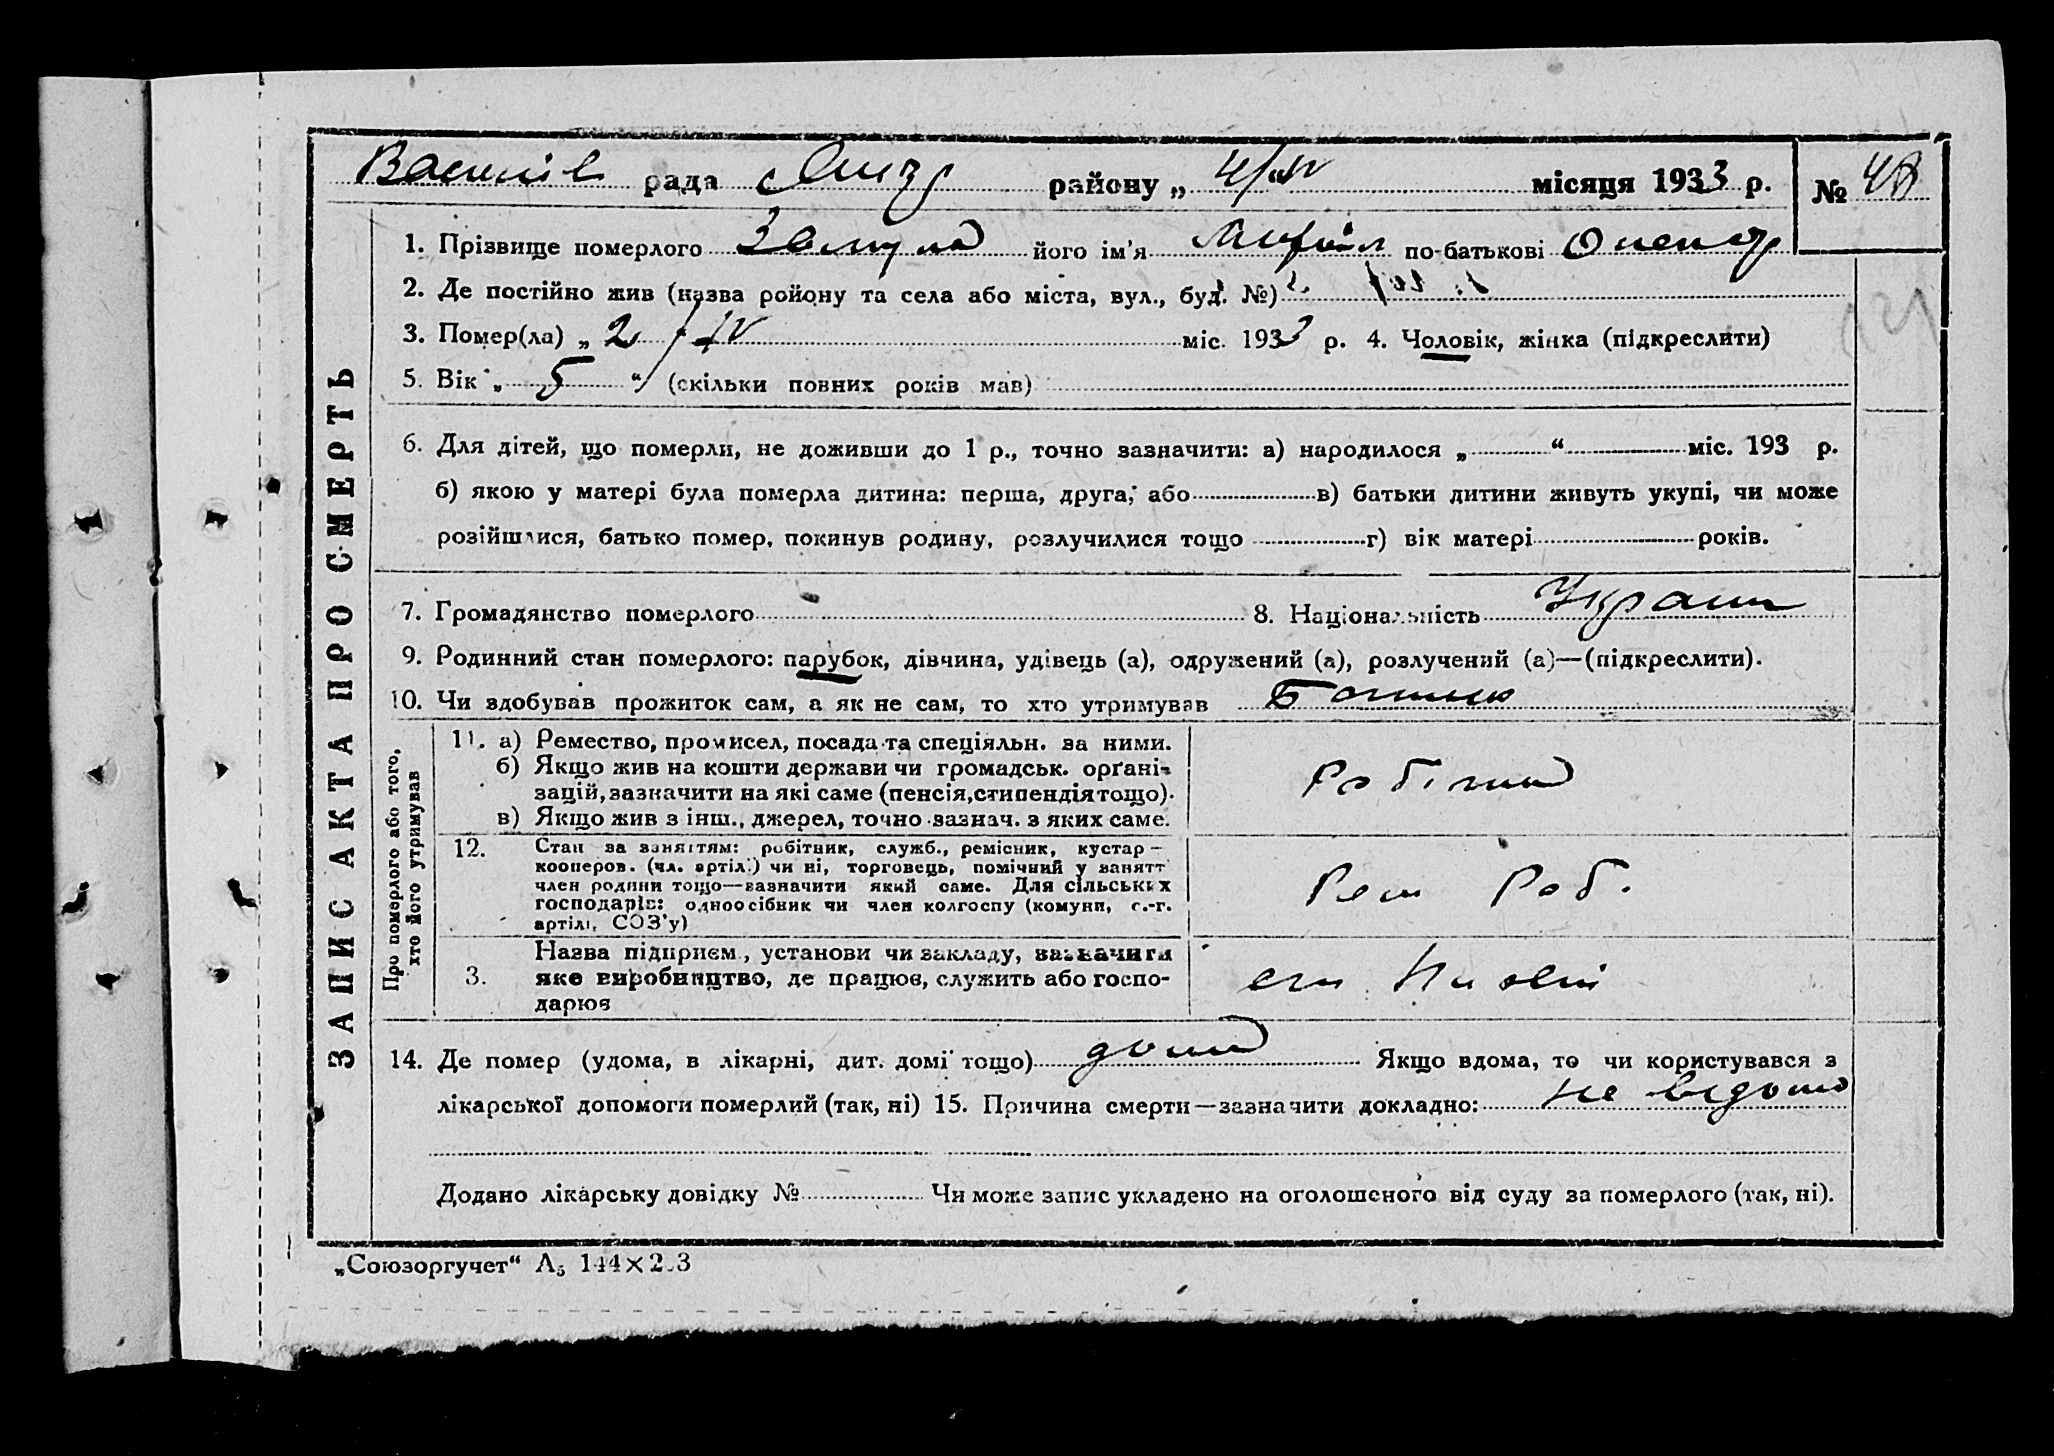 Василів рада районy „ 4/IV “ місяця 1933 р. №
1. Прізвище померлого його ім'я по-батькові
2. Де постійно жив (назва району та села або міста, вул., буд. №)
3. Помер(ла) „ 2 / IV міс. 1933 р. 4. Чоловік, жінка (підкреслити)
5. Вік „ 5 “ (скільки повних років мав)
6. Для дітей, що померли, не доживши до 1 р., точно зазначити: а) народилося „ “ міс. 193 р.
б) якою у матері була померла дитина: перша, друга, або в) батьки дитини живуть укупі, чи може
розійшлися, батько помер, покинув родину, розлучилися тощо г) вік матері років.
7. Громадянство померлого 8. Національність Україн
9. Родинний стан померлого: парубок, дівчина, удівець (а), одружений (а), розлучений (а)—(підкреслити).
10. Чи здобував прожиток сам, а як не сам, то хто утримував Батько
ЗАПИС АКТА ПРО СМЕРТЬ
Про померлого або того,
хто його утримував
11. а) Ремество, промисел, посада та спеціяльн. за ними.
б) Якщо жив на кошти держави чи громадськ. орґані-
зацій, зазначити на які саме (пенсія, стипендія тощо).
в) Якщо жив з інш., джерел, точно зазнач. з яких саме.
Робітник
12. Стан за заняттям: робітник, служб., ремісник, кустар—
кооперов. (чл. артіл.) чи ні, торговець, помічний у занятт
член родини тощо—зазначити який саме. Для сільських
господарів: одноосібник чи член колгоспу (комуни, с.-г.
артілі, СОЗ'у)
Роб.
3. Назва підприєм., установи чи закладу, зазначити
яке виробництво, де працює, служить або госпо-
дарює
14. Де помер (удома, в лікарні, дит. домі тощо) дома Якщо вдома, то чи користувався з
лікарської допомоги померлий (так, ні) 15. Причина смерти—зазначити докладно: не відомо
Додано лікарську довідку № Чи може запис укладено на оголошеного від суду за померлого (так, ні).
„Союзоргучет“ А₅ 144×203